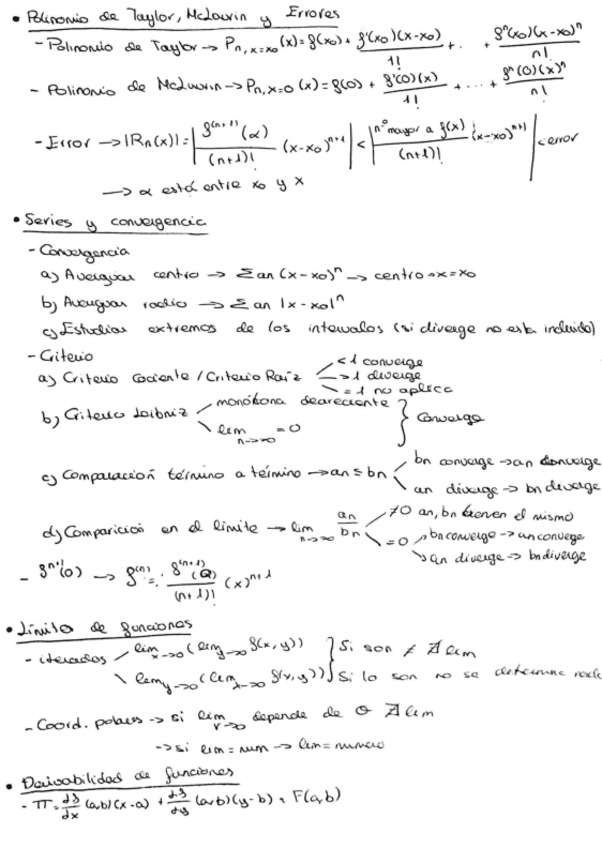 • Polinomio de Taylor, McLaurin y Errores
- Polinomio de Taylor → Pn, x=x0 (x) = f(x0) + f'(x0)(x-x0)/1! + ... + fⁿ(x0)(x-x0)ⁿ/n!
- Polinomio de McLaurin → Pn, x=0 (x) = f(0) + f'(0)(x)/1! + ... + fⁿ(0)(x)ⁿ/n!
- Error → |Rn(x)| = | f⁽ⁿ⁺¹⁾(α)/(n+1)! (x-x0)ⁿ⁺¹ | < | nº mayor a f(x)/(n+1)! (x-x0)ⁿ⁺¹ | < error
→ α está entre x0 y x
• Series y convergencia
- Convergencia
a) Averiguar centro → Σan (x-x0)ⁿ → centro → x=x0
b) Averiguar radio → Σan |x-x0|ⁿ
c) Estudiar extremos de los intervalos (si diverge no esta incluido)
- Criterio
a) Criterio Cociente / Criterio Raíz <1 converge
>1 diverge
=1 no aplica
b) Criterio Leibniz monótona decreciente
lim n→∞ = 0 } Converge
c) Comparación término a término → an ≤ bn bn converge → an converge
an diverge → bn diverge
d) Comparición en el límite → lim n→∞ an/bn ≠0 an, bn tienen el mismo
=0 bn converge → an converge
an diverge → bn diverge
- fⁿ⁺¹(0) → f⁽ⁿ⁾ = f⁽ⁿ⁺¹⁾(0)/(n+1)! (x)ⁿ⁺¹
• Límite de funciones
- iterados lim x→0 (lim y→0 f(x,y)) } Si son ≠ ∄ lim
lim y→0 (lim x→0 f(x,y)) } Si lo son no se determina nada
- Coord. polares → si lim r→0 depende de θ ∄ lim
→ si lim = num → lim = número
• Derivabilidad de funciones
- π = df/dx (a,b)(x-a) + df/dy (a,b)(y-b) + F(a,b)